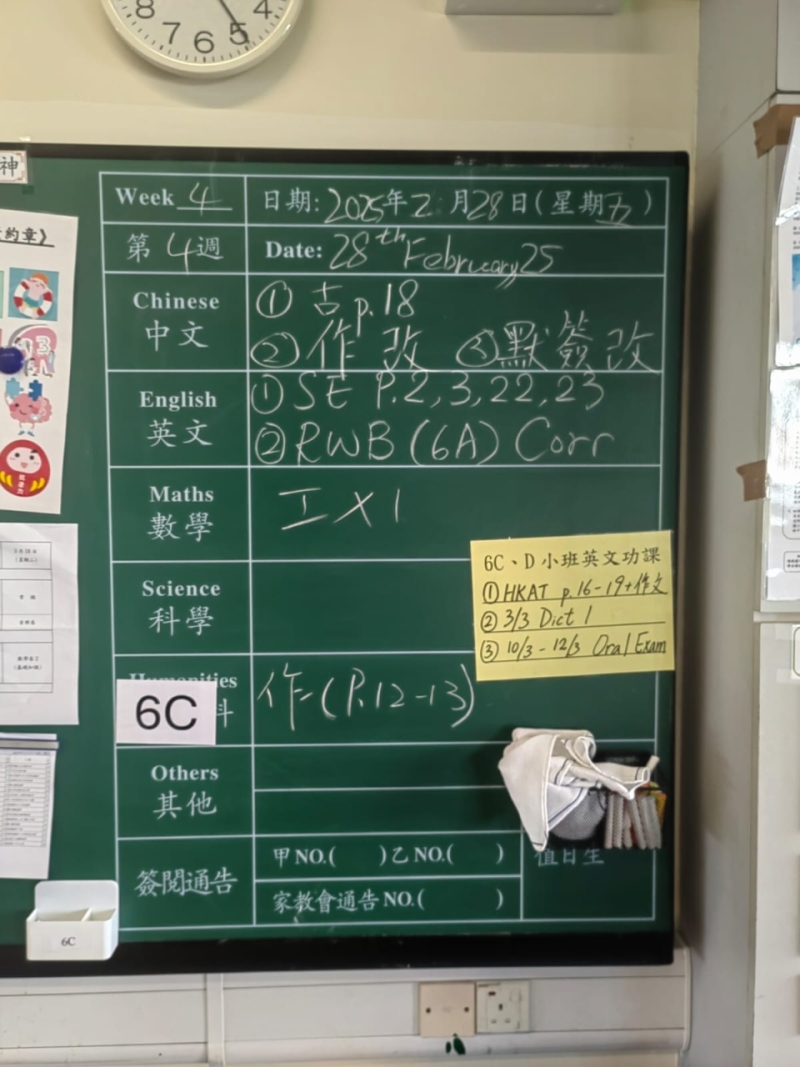 8 7 6 5 4
神
約章》
Week 4
日期: 2025年2月28日(星期五)
第4週
Date: 28th February 25
Chinese
中文
① 古 p.18
② 作改 ③ 默簽改
English
英文
① SE P.2,3,22,23
② RWB (6A) Corr
Maths
數學
工 X 1
Science
科學
6C、D 小班英文功課
① HKAT p.16-19+作文
② 3/3 Dict 1
③ 10/3 - 12/3 Oral Exam
Humanities
科
6C
作二(P.12-13)
Others
其他
簽閱通告
甲NO.( )乙NO.( )
值日生
家教會通告NO.( )
6C